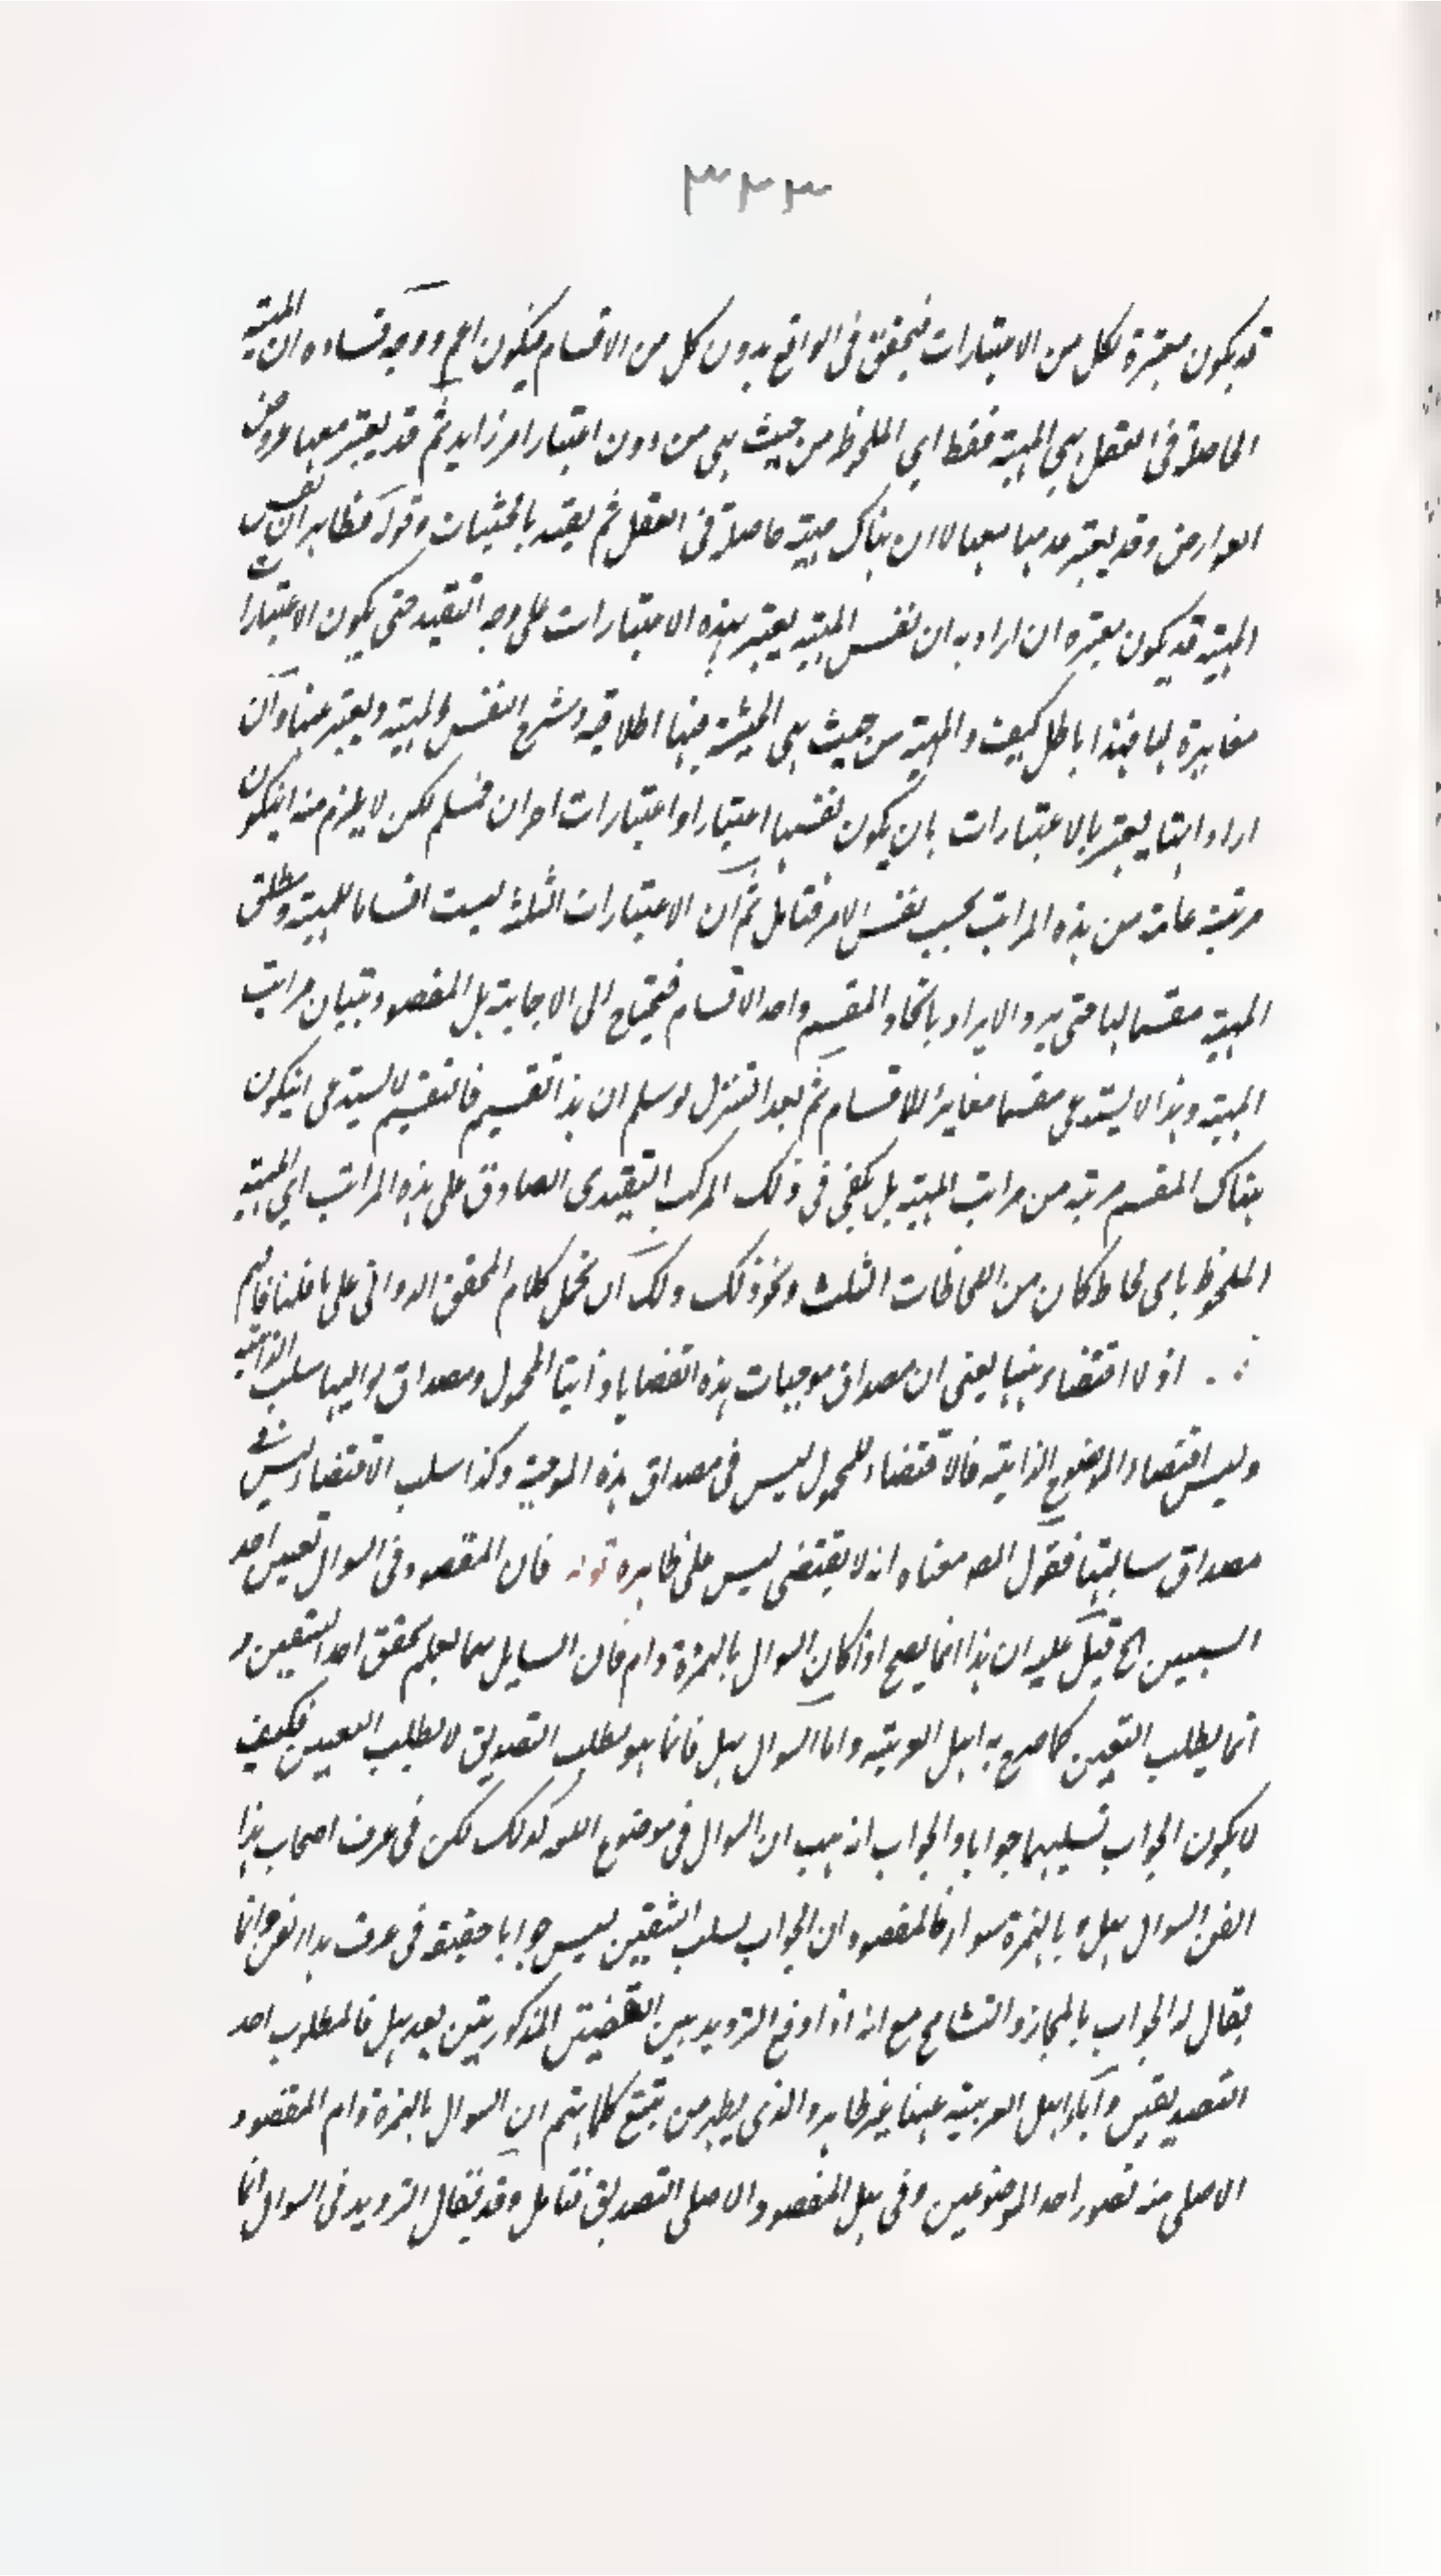 ٣٣٣
قد يكون معتبرة لكل من الاعتبارات فيتحقق فى الواقع بدون كل من الاقسام فيكون اعم ووجه فساده ان المهية
الحاصلة فى العقل هى المهية فقط اى الملحوظ من حيث هى من دون اعتبار امر زايد ثم قد يعتبر معها عروض
العوارض وقد يعتبر عدمها معها لا ان هناك مهية حاصلة فى العقل ثم يقيد بالحيثيات وقوله فظاهر ان نفس
المهية قد يكون معتبره ان اراد به ان نفس المهية يعتبر بهذه الاعتبارات على وجه التقيد حتى يكون الاعتبارات
مغايرة لها فهذا باطل كيف والمهية من حيث هى الحيثية فيها اطلاقية وشرح لنفس المهية ويعتبر عنها وان
اراد انها يعتبر بالاعتبارات بان يكون نفسها اعتبارا واعتبارات اخران فمسلم لكن لا يلزم منه ان يكون
مرتبة عامة من هذه المراتب بحسب نفس الامر فتامل ثم ان الاعتبارات الثلثة ليست اقساما للمهية ومطلق
المهية مقسما لها حتى يرد الايراد باتحاد المقسم واحد الاقسام فيحتاج الى الاجابة بل المقصود بيان مراتب
المهية وهذا لا يستدعى مقسما مغايرا للاقسام ثم بعد التنزل لو سلم ان هذا تقسيم فالتقسيم لا يستدعى ان يكون
هناك المقسم مرتبه من مراتب المهية بل يكفى فى ذلك المركب التقييدى الصادق على هذه المراتب اى المهية
الملحوظ باى لحاظ كان من اللحاظات الثلث ونحو ذلك ولك ان تحمل كلام المحقق الدوانى على ما قلنا فافهم
اذ لا اقتضاء بينها يعنى ان مصداق موجبات هذه القضايا ذاتيا المحمول ومصداق سوالبها سلب الذاتية
وليس اقتضاء الموضوع الذاتية فالاقتضاء للمحمول ليس فى مصداق هذه الموجبة وكذا سلب الاقتضاء ليس فى
مصداق سالبتها فقول المصـ معناه انه لا يقتضى ليس على ظاهره قوله فان المقصود فى السوال تعيين احد
السببين الخ قيل عليه ان هذا انما يصح اذا كان السوال بالهمزة وام فان السايل بهما يعلم تحقق احد الشقين و
انما يطلب التعيين كما صرح به اهل العربية واما السوال بهل فانما هو لطلب التصديق لا لطلب التعيين فكيف
لا يكون الجواب بسلبهما جوابا والجواب انه هب ان السوال فى موضوع اللغه كذلك لكن فى عرف اصحاب هذا
الفن السوال بهل و بالهمزة سواء فالمقصود ان الجواب بسلب الشقين ليس جوابا حقيقة فى عرف هذا الفن وانما
يقال له الجواب بالمجاز والتسامح مع انه اذا وقع الترديد بين القضيتين المذكورتين بعد هل فالمطلوب احد
التصديقين وآباء اهل العربية عنها غير ظاهر والذى يظهر من تتبع كلامهم ان السوال بالهمزة وام المقصود
الاصلى منه تصور احد الموضوعين وفى هل المقصود الاصلى التصديق فتامل وقد يقال الترديد فى السوال انما